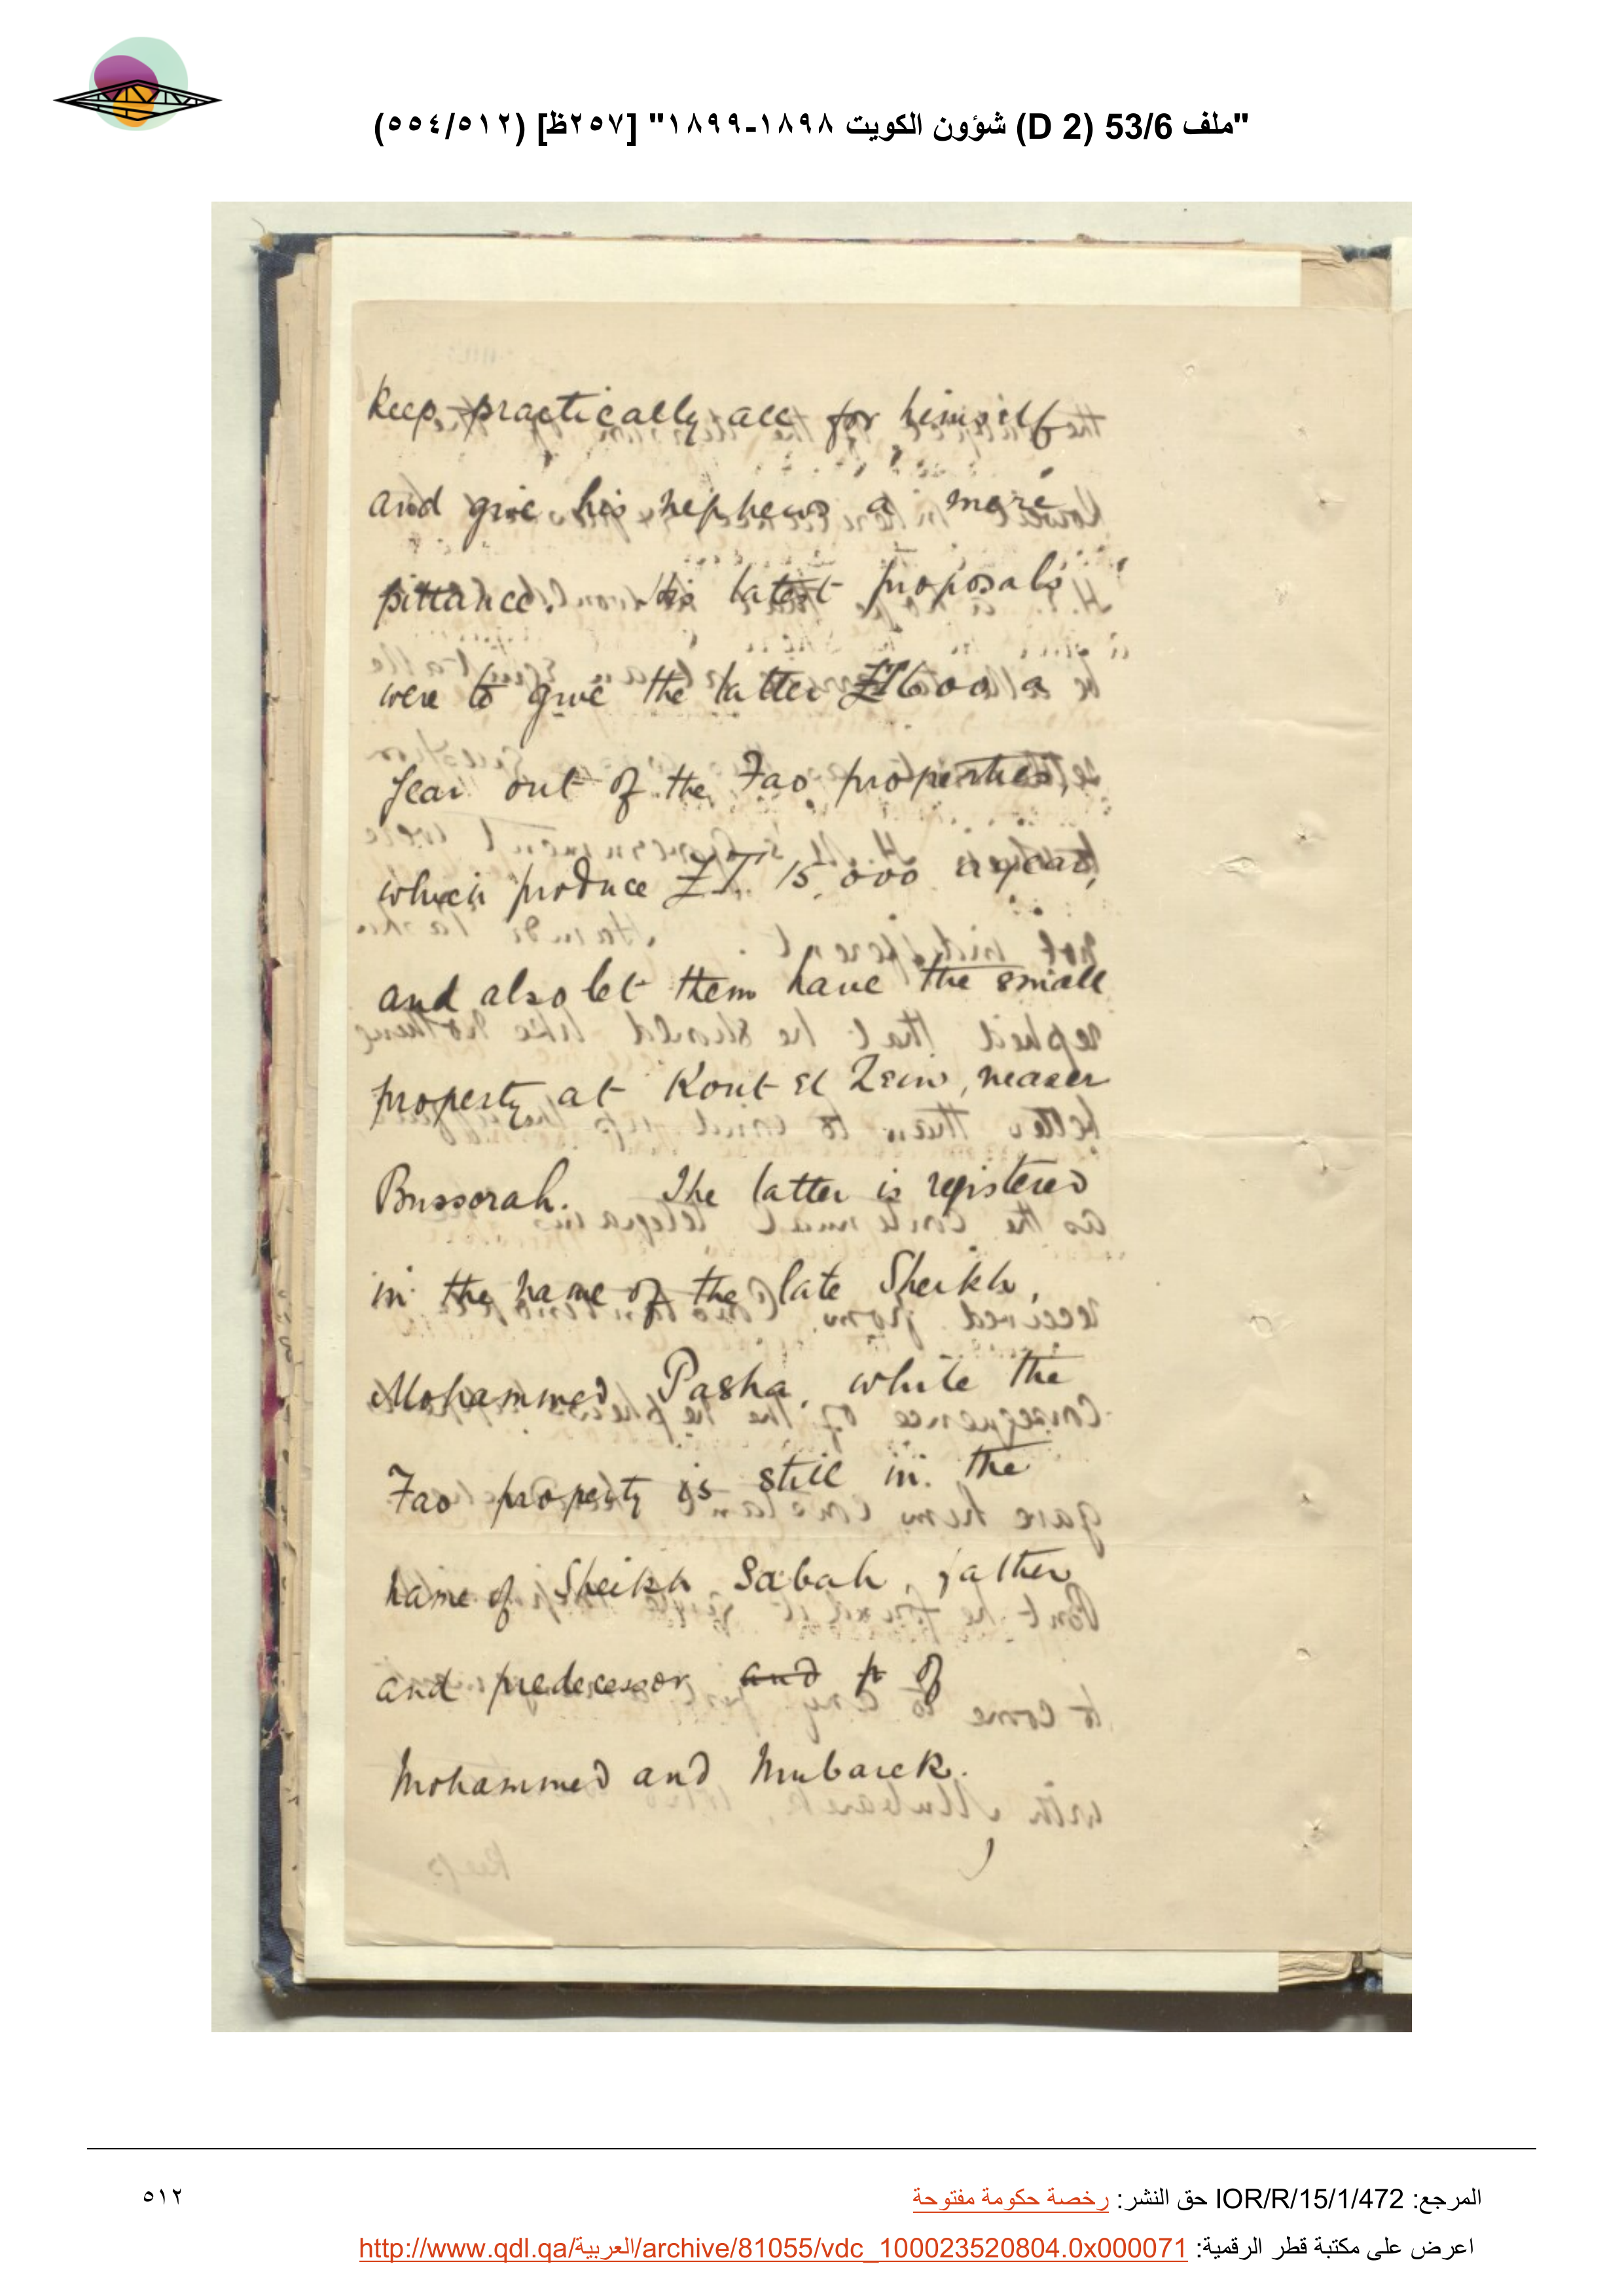 "ملف 53/6 (D 2) شؤون الكويت ١٨٩٨-١٨٩٩" [٢٥٧ظ] (٥٥٤/٥١٢)
keep practically all for himself
and give his nephews a mere
pittance. His latest proposals
were to give the latter £T600 a
year out of the Fao properties,
which produce £T. 15,000 a year,
and also let them have the small
property at Kout El Zein, nearer
Bussorah. The latter is registered
in the name of the late Sheikh,
Mohammed Pasha, while the
Fao property is still in the
name of Sheikh Sabah, father
and predecessor and p of
Mohammed and Mubarek.
المرجع: IOR/R/15/1/472 حق النشر: رخصة حكومة مفتوحة
٥١٢
اعرض على مكتبة قطر الرقمية: http://www.qdl.qa/العربية/archive/81055/vdc_100023520804.0x000071